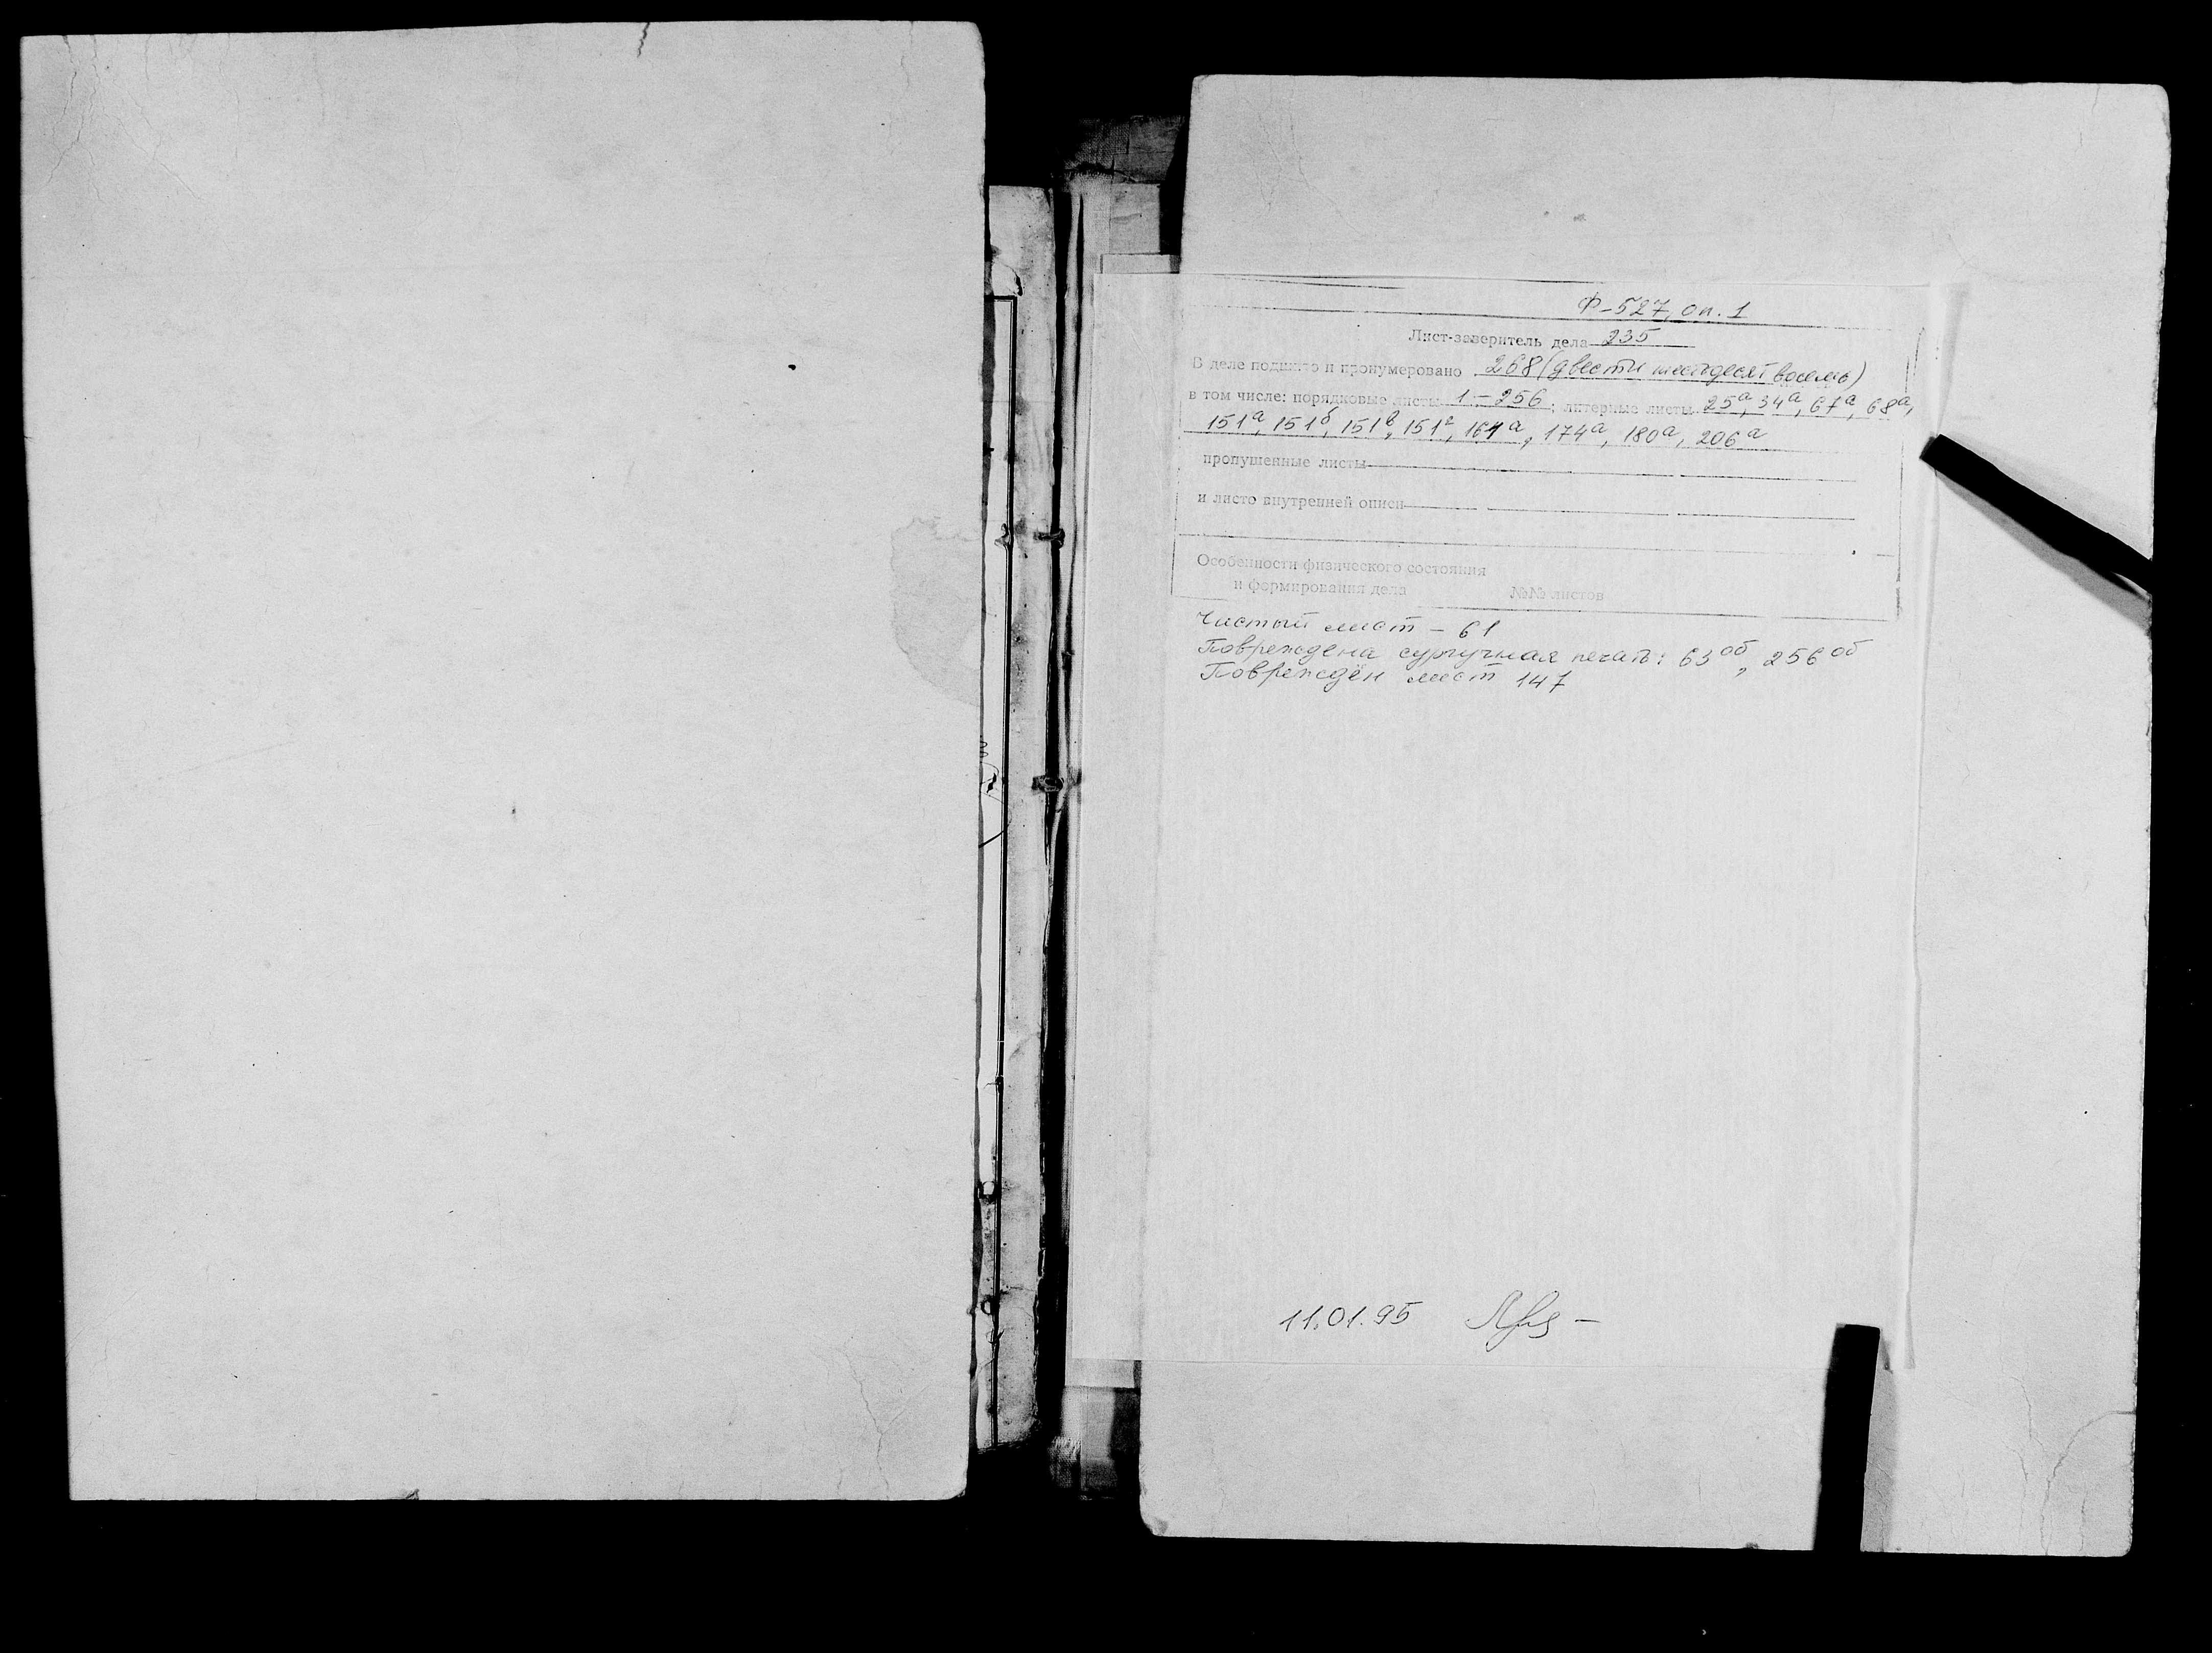 Ф-527, оп. 1
Лист-заверитель дела 235
В деле подшито и пронумеровано 268 (двести шестьдесят восемь)
в том числе: порядковые листы 1-256; литерные листы 25а, 34а, 67а, 68а,
151а, 151б, 151в, 151г, 164а, 174а, 180а, 206а
пропущенные листы
и листо внутренней описи
Особенности физического состояния
и формирования дела №№ листов
Чистый лист - 61
Повреждена сургучная печать: 63об, 256об
Повреждён лист 147
11.01.95